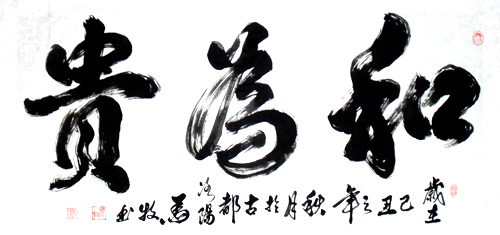 和為貴
歲在己丑之年秋月於古都洛陽馬牧書